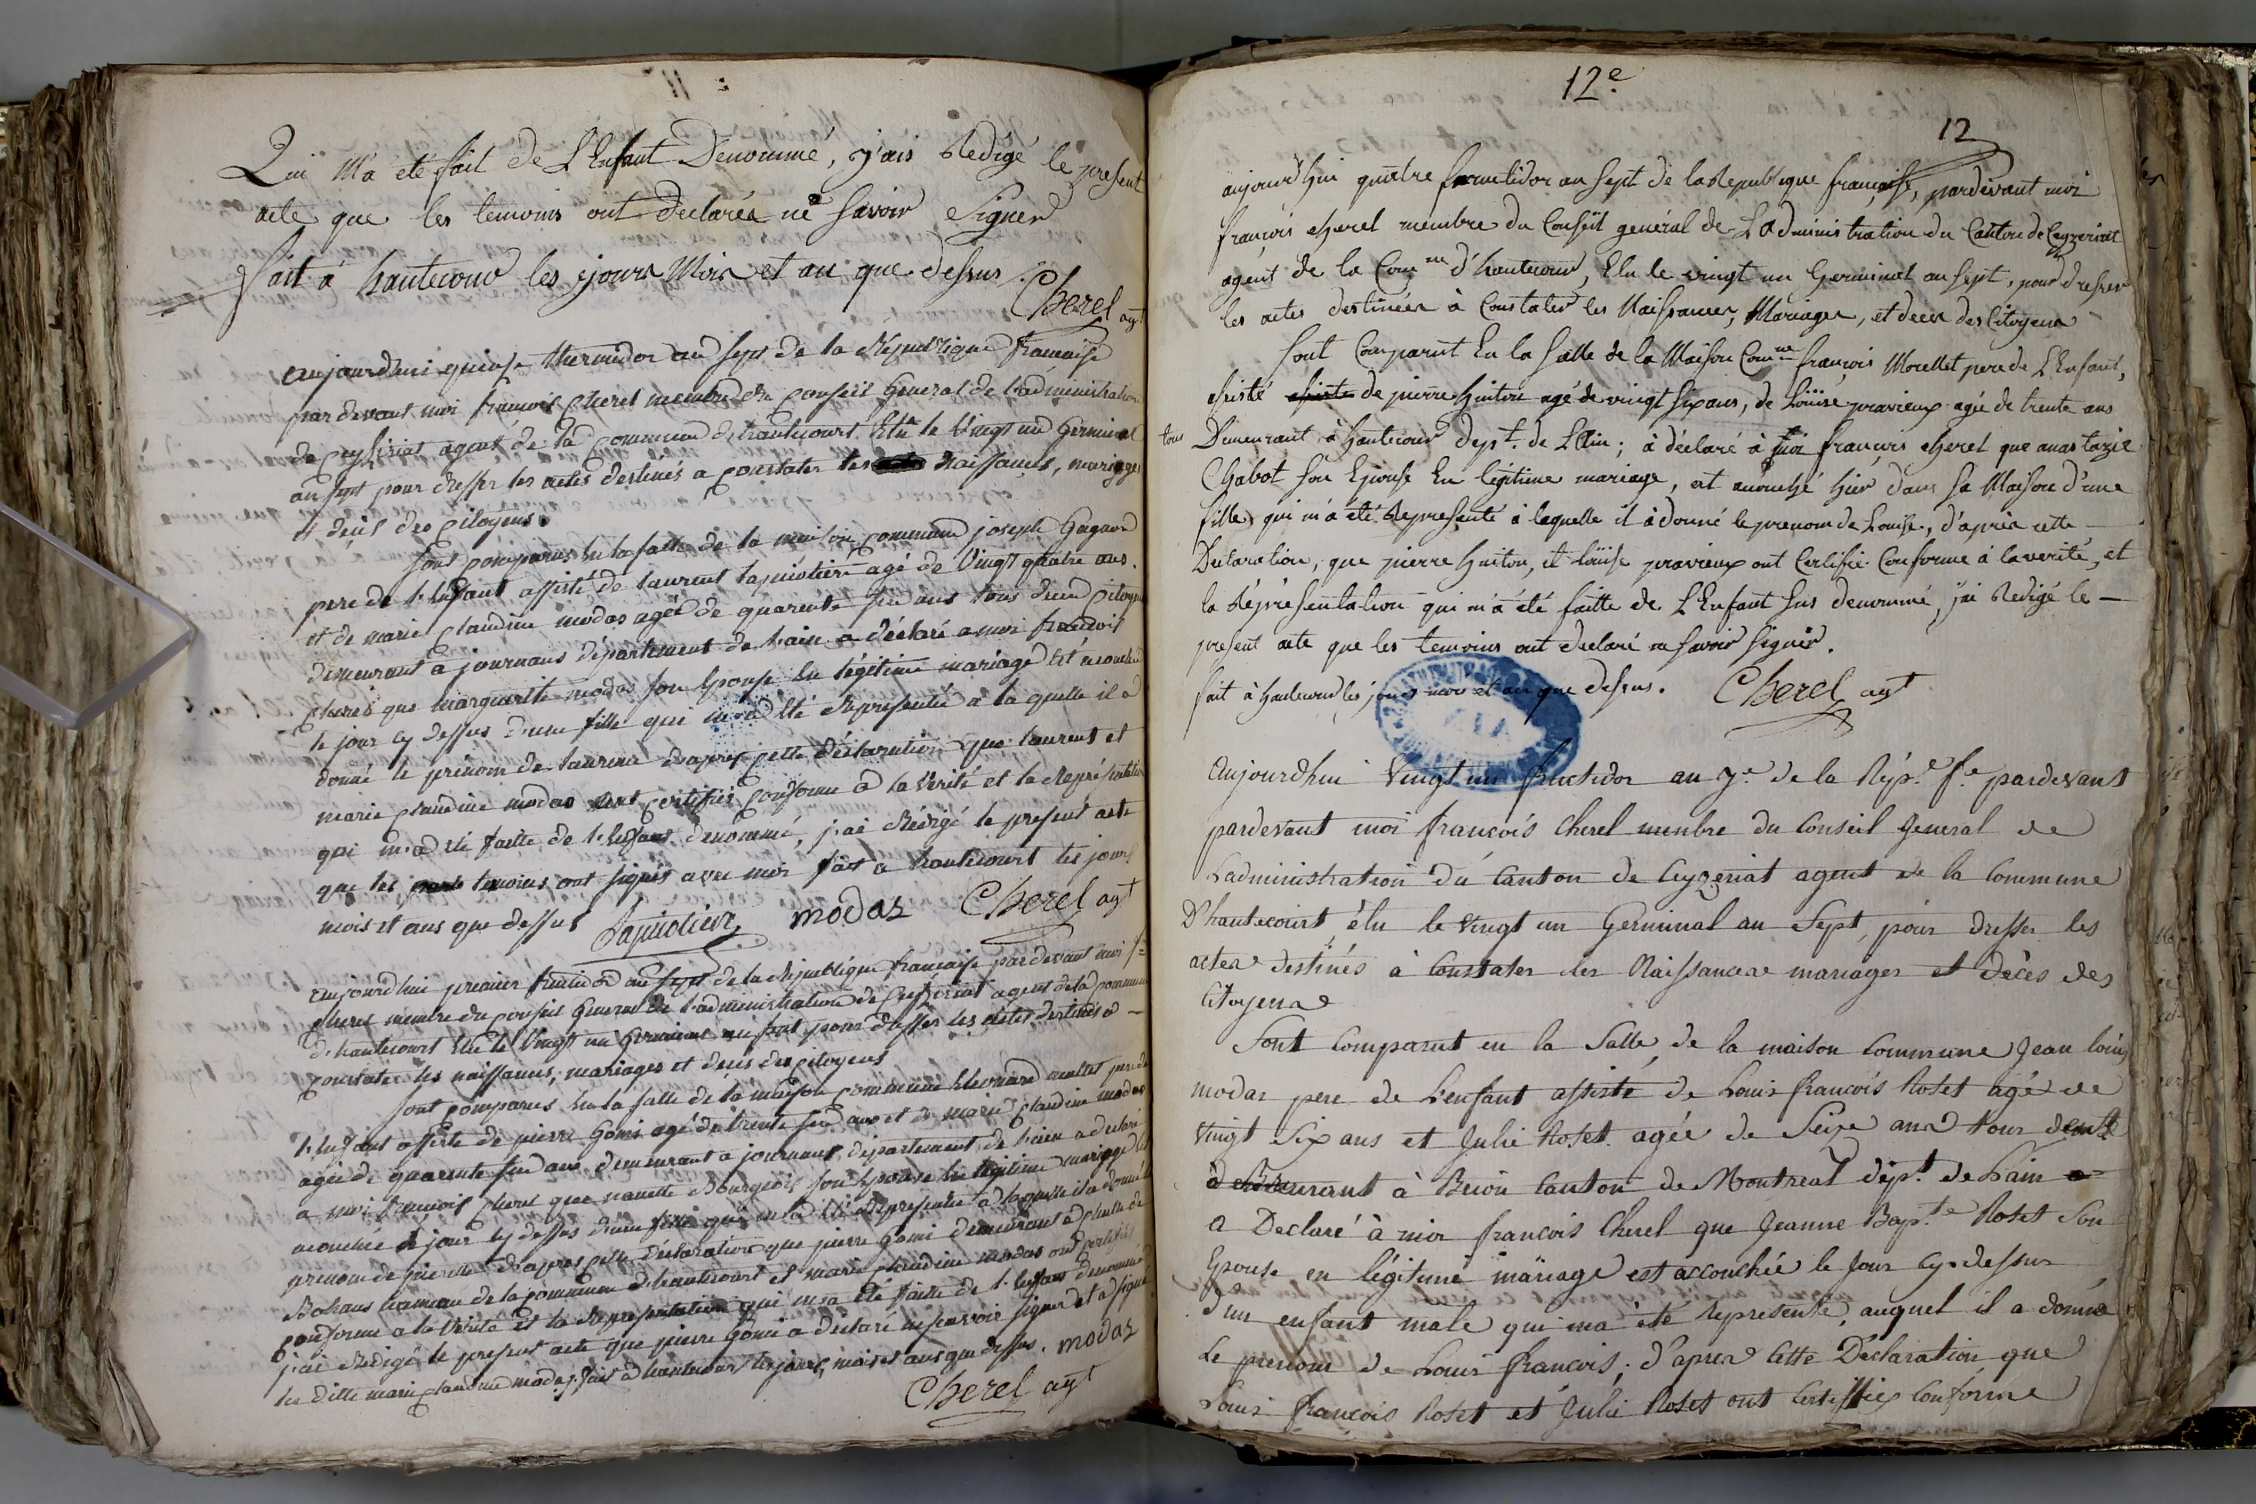 Qui M'a eté fait de L'Enfant Denommé, j'ais Redigé le present
acte que les temoins ont declarés ne savoir Signer
fait á hautecour les jours Mois et an que dessus
Cherel agt
aujourdhui quinze thermidor an sept de la République francaise
par devant moi francois Cherel membre du conseil General de l'administration
de Ceyseriat agent de la commune d'hautecourt Elu le vingt un Germinal
an sept pour dresser les actes destinés a constater les naissances, mariages
et décés des citoyens.
sont comparus en la salle de la maison commune joseph
pere de l'Enfant assisté de laurent lapierre agé de vingt quatre ans
et de marie claudine modas agée de quarente six ans tous deux
demeurant a journans département de l'ain a déclaré a moi francois
Cherel que marguerite modas son Epouse en légitime mariage Est accouchée
le jour cy dessus d'une fille qui m'a Eté Représentée a la quelle il a
donné le prénom de laurence d'apres cette déclaration que laurent et
marie claudine modas ont certifié conforme a la vérité et la Représentation
qui m'a été faitte de l'Enfant denommé, j'ai Rédigé le present acte
que les temoins ont signés avec moi fait a hautecourt les jours
mois et ans que dessus modas Cherel agt
aujourdhui premier fructidor an sept de la République francaise pardevant moi
Cherel membre du conseil General de l'administration de Ceyseriat agent de la commune
d'hautecourt Elu le vingt un Germinal an sept pour dresser les actes destinés a
constater les naissances, mariages et decés des citoyens
sont comparus En la salle de la maison commune Eleonard pere de
l'Enfant assisté de pierre Gomi agé de trente six ans et de marie claudine modas
agée de quarente six ans demeurant a journans département de l'ain a déclaré
a moi francois Cherel que nanette Bourgeois son Epouse En légitime mariage Est
accouchée le jour cy dessus d'une fille qui m'a été Representée a laquelle il a donné le
prenom de d'apres cette déclaration que pierre Gomi demeurant a
Bohans hameau de la commune d'hautecourt et marie claudine modas ont certifié
conforme a la vérité Et la Représentation qui m'a été faitte de l'Enfant denommé
j'ai Rédigé le present acte que pierre Gomi a declaré ne scavoir signer et a signé
la ditte marie claudine modas. fait a hautecour les jours, mois et ans que dessus. modas
Cherel agt
12e
12
aujourd'hui quatre fructidor an sept de la Republique française, pardevant moi
françois cherel membre du Conseil general de L'Administration du Canton de Ceyzeriat
agent de la Comne d'hautecour, Elu le vingt un Germinal an sept, pour dresser
les actes destinées à Constater les Naissances, Mariages, et deces des Citoyens
Sont Comparut En la Salle de la Maison Comne françois Morellet pere de L'Enfant,
assisté de pierre Huiton agé de vingt six ans, de Loüise pravieux agée de trente ans
tous Demeurant à hautecour dept. de L'Ain; à déclaré à moi françois cherel que anastazie
Chabot son Epouse En légitime mariage, est accouché hier dans sa Maison d'une
fille qui m'a été Representé à laquelle il à donné le prenom de Louise, d'après cette
Declaration, que pierre Huiton, et loüise pravieux ont Certifié Conforme à la verité, et
la Répresentation qui m'a été faitte de L'Enfant sus denommé, j'ai Redigé le
present acte que les temoins ont declaré ne savoir signer.
fait à hautecour les jours mois et an que dessus. Cherel agt
Aujourdhui vingt un fructidor an 7e. de la Rép.e f.e pardevant
pardevant moi francois Cherel menbre du Conseil General de
L'administration du Canton de Ceyzeriat agent de la Commune
D'hautecourt élu le vingt un Germinal an Sept, pour dresser les
actes destinés à Constater les Naissances mariages et decès des
Citoyens
Sont Comparut en la Salle de la maison Commune Jean louis
modas pere de L'enfant assisté de Louis francois Rosset agé de
vingt Six ans et Julie Rosset agée de Seize ans tous deux
demeurant à Brion Canton de Montreal dépt. de Lain
a Declaré à moi francois Cherel que Jeanne Bapte. Rosset Son
Epouse en légitime mariage est accouchée le Jour cy-dessus
d'un enfant male qui m'a été Représenté, auquel il a donné
Le prenom de Louis francois; d'apres Cette Déclaration que
Louis francois Rosset et Julie Rosset ont Certiffiés Conforme